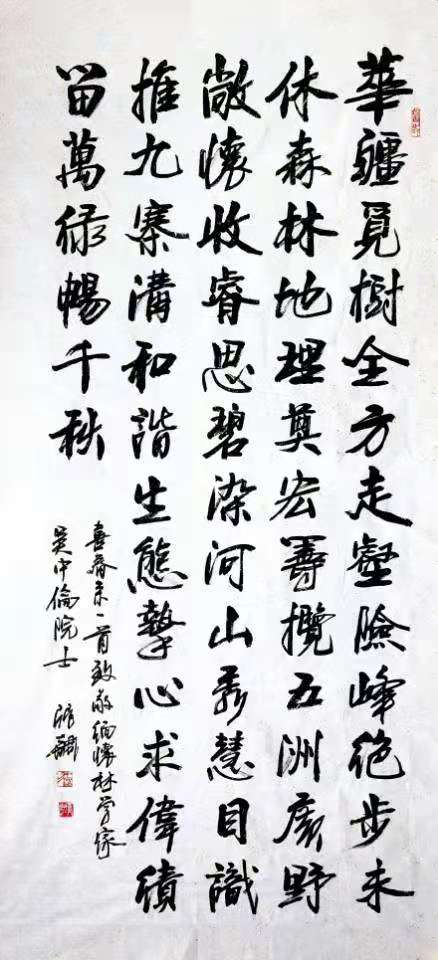 華疆覓樹全方走壑險峰绝步未
休森林地理奠宏籌攬五洲廣野
敞懷收睿思碧染河山秀慧目識
推九寨溝和諧生態摯心求偉績
留萬绿暢千秋
喜春来一首致敬缅懷林学家
吴中倫院士